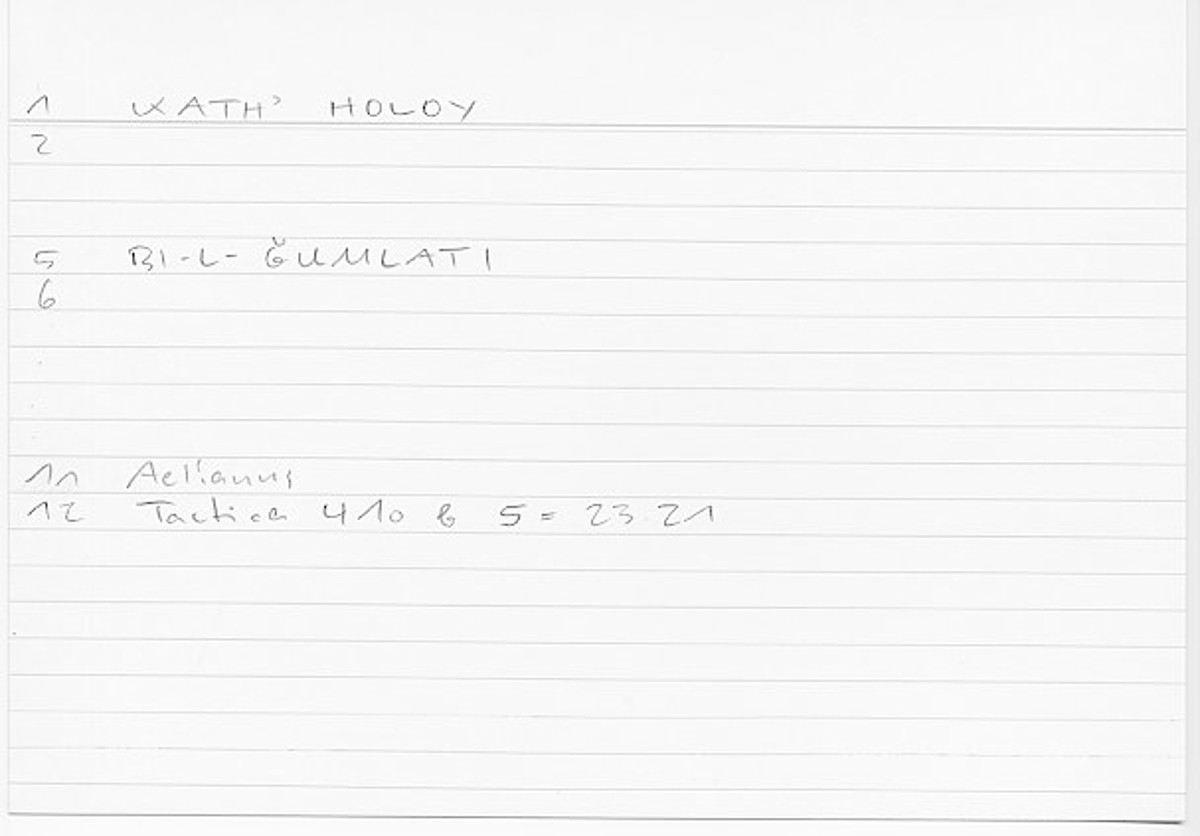 1 KATH' HOLOY
2
5 BI-L-ĞUMLATI
6
11 Aelianus
12 Tactica 410 b 5 = 23.21